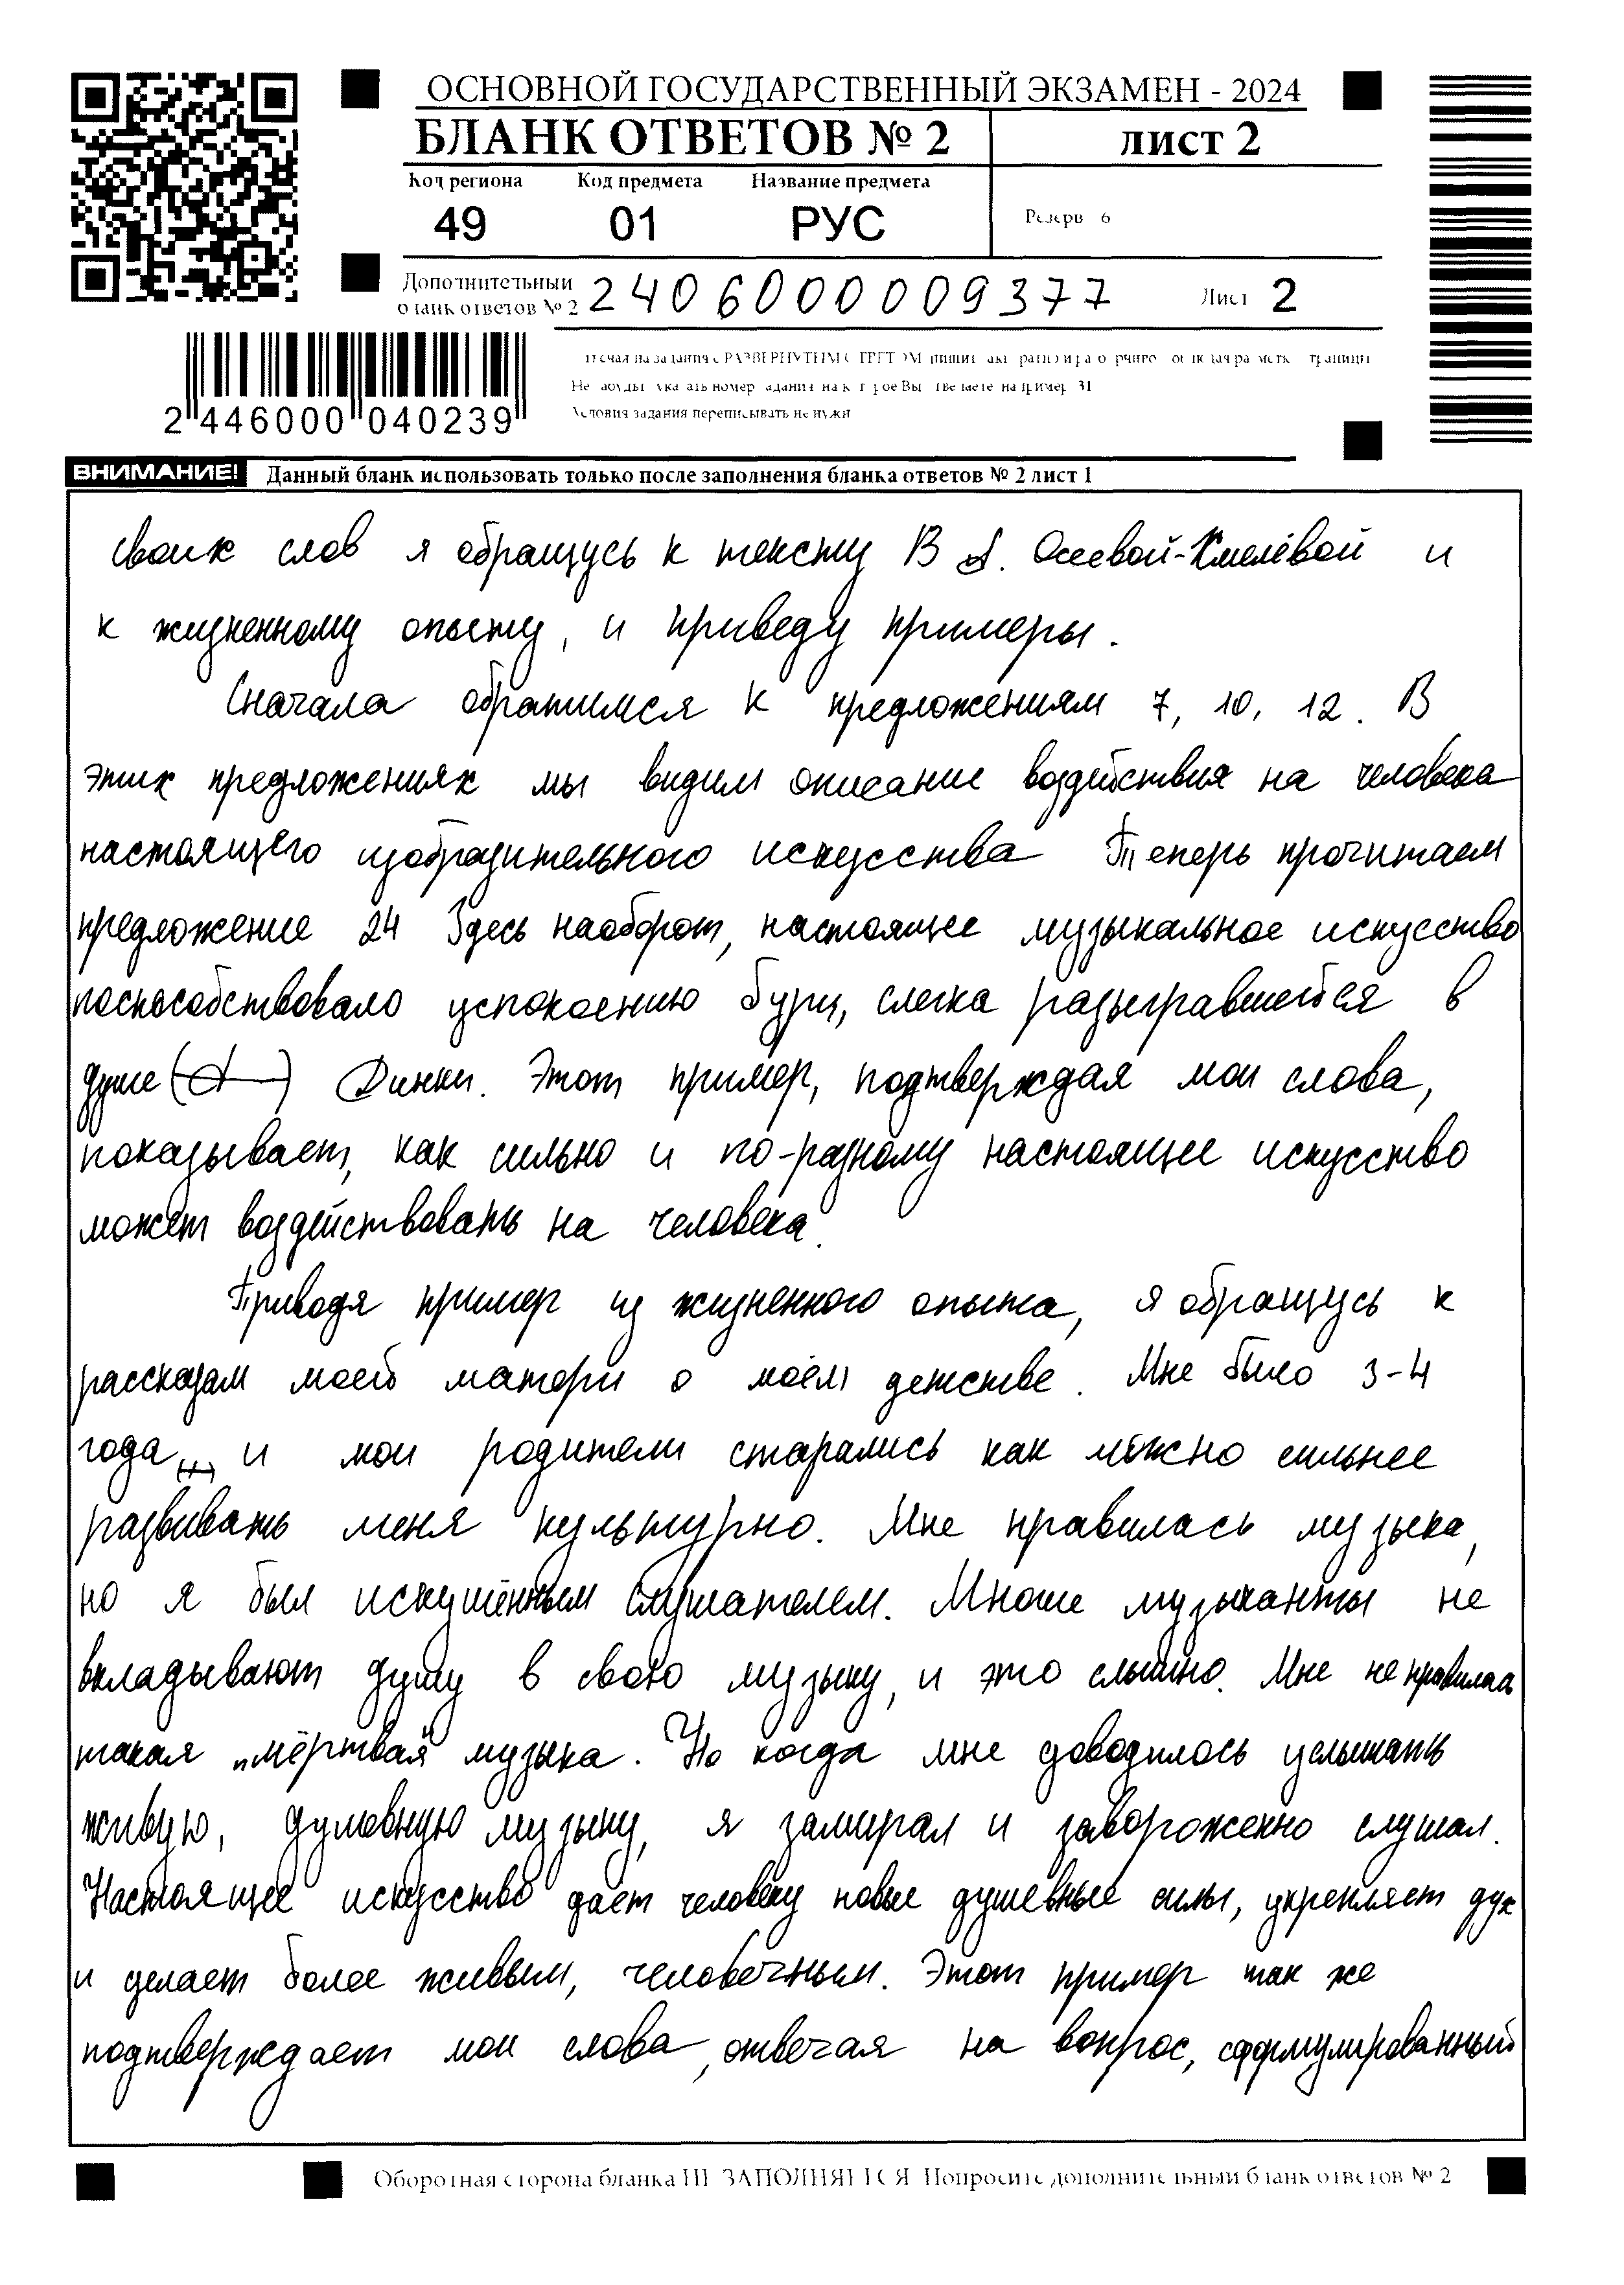 ОСНОВНОЙ ГОСУДАРСТВЕННЫЙ ЭКЗАМЕН - 2024
БЛАНК ОТВЕТОВ № 2
ЛИСТ 2
Код региона Код предмета Название предмета
49 01 РУС
Резерв 6
Дополнительный
бланк ответов № 2
2406000009377
Лист 2
2 446000 040239
Условия задания переписывать не нужно
ВНИМАНИЕ! Данный бланк использовать только после заполнения бланка ответов № 2 лист 1
своих слов я обращусь к тексту В А. Осеевой-Хмелёвой и
к жизненному опыту, и приведу примеры.
Сначала обратимся к предложениям 7, 10, 12. В
этих предложениях мы видим описание воздействия на человека
настоящего изобразительного искусства Теперь прочитаем
предложение 24 Здесь наоборот, настоящее музыкальное искусство
поспособствовало успокоению бури, слегка разыгравшейся в
душе Динки. Этот пример, подтверждая мои слова,
показывает, как сильно и по-разному настоящее искусство
может воздействовать на человека.
Приводя пример из жизненного опыта, я обращусь к
рассказам моей матери о моём детстве. Мне было 3-4
года, и мои родители старались как можно сильнее
развивать меня культурно. Мне нравилась музыка,
но я был искушённым слушателем. Многие музыканты не
вкладывают душу в свою музыку, и это слышно. Мне не нравилась
такая "мёртвая" музыка. Но когда мне доводилось услышать
живую, духовную музыку, я замирал и завороженно слушал.
Настоящее искусство даёт человеку новые душевные силы, укрепляет дух
и делает более живым, человечным. Этот пример так же
подтверждает мои слова, отвечая на вопрос, сформулированный
Оборотная сторона бланка НЕ ЗАПОЛНЯЕТСЯ Попросите дополнительный бланк ответов № 2